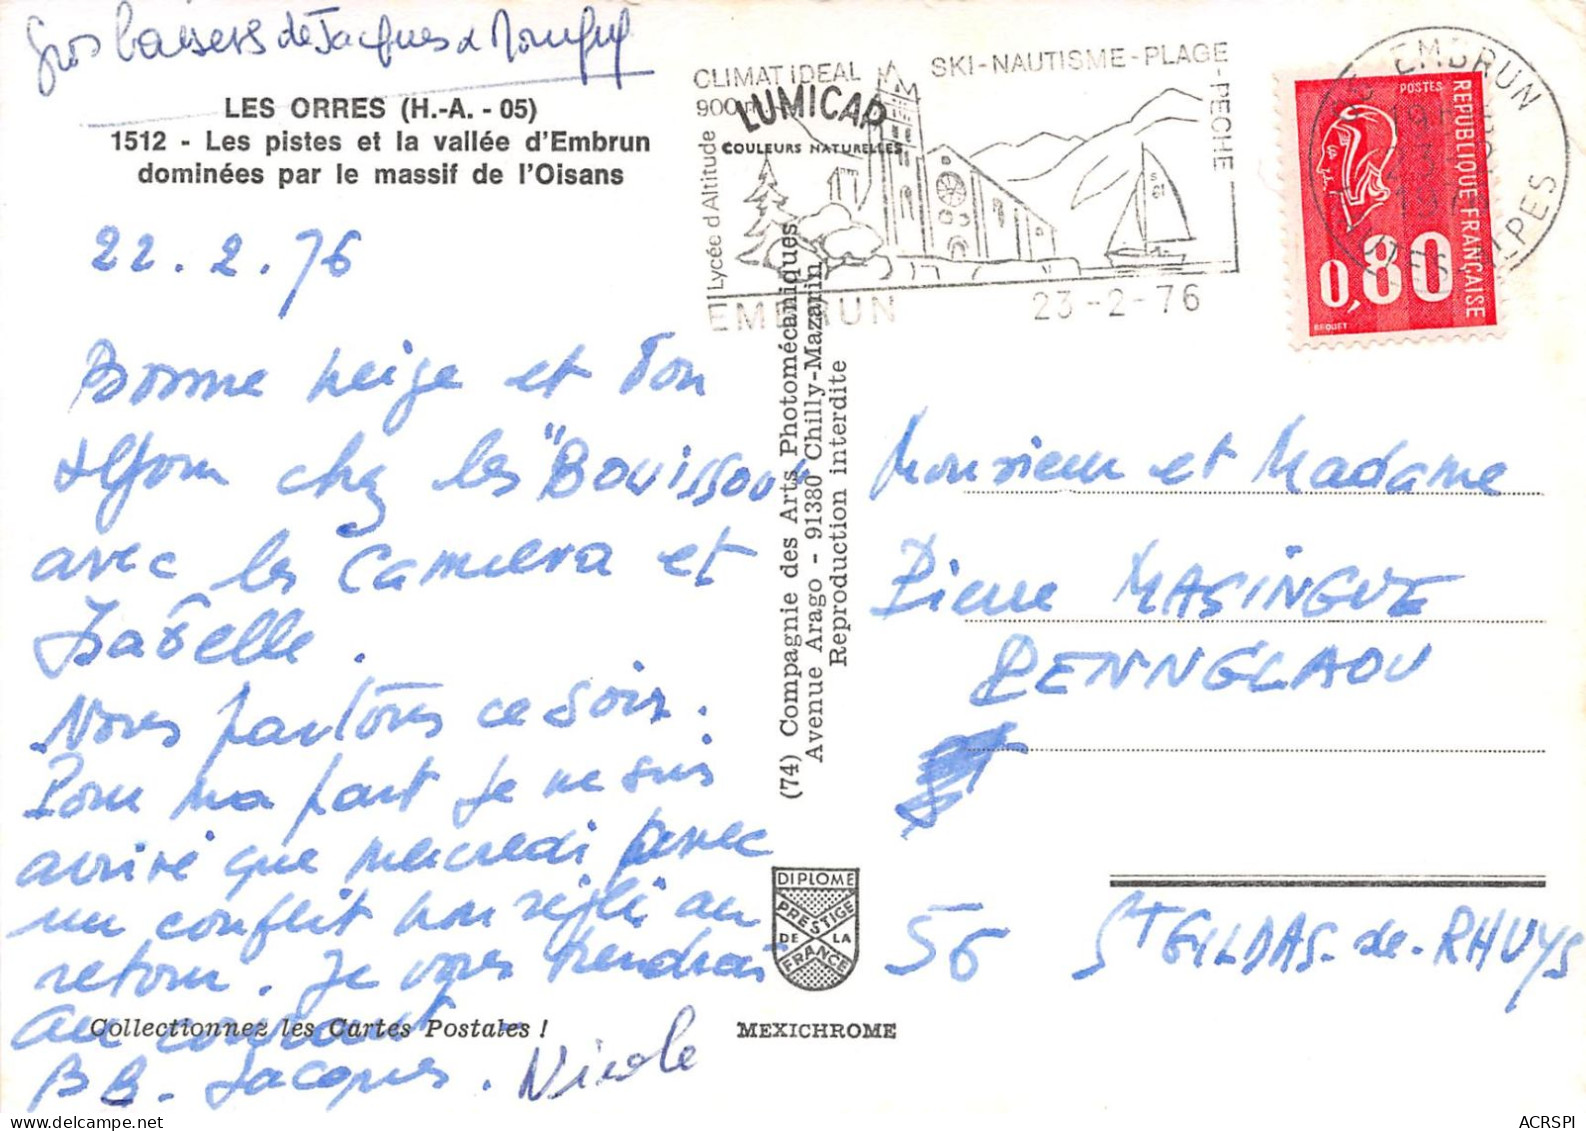 Gros baisers de Jacques &
LES ORRES (H.-A. - 05)
1512 - Les pistes et la vallée d'Embrun
dominées par le massif de l'Oisans
22.2.76
Bonne neige et bon
séjour chez les "Bouissou"
avec les Caméra et
Isabelle.
Nous partons ce soir.
Pour ma part je ne suis
arrivé que mercredi avec
un conflit non réglé au
retour. Je vous tiendrai
au courant
BB. Jacques. Nicole
Collectionnez les Cartes Postales !
CLIMAT IDEAL
900 m.
Lycée d'Altitude
SKI-NAUTISME-PLAGE
-PECHE
EMBRUN
23-2-76
LUMICAP
COULEURS NATURELLES
(74) Compagnie des Arts Photomécaniques
Avenue Arago - 91380 Chilly-Mazarin
Reproduction interdite
EMBRUN
HAUTES-ALPES
POSTES
REPUBLIQUE FRANÇAISE
0,80
BEQUET
Monsieur et Madame
Pierre MASINGUE
PENNGLAOU
56 St GILDAS-de-RHUYS
DIPLOME
PRESTIGE
DE LA
FRANCE
MEXICHROME
ACRSPI